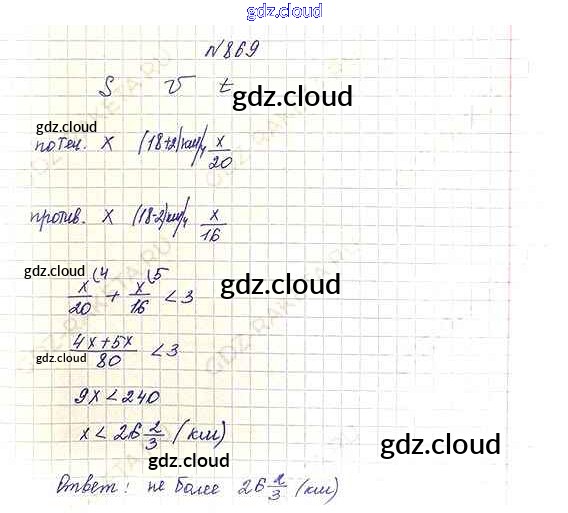 gdz.cloud
N 869
S V t
gdz.cloud
gdz.cloud
по теч. x (18+2) км/ч x/20
против. x (18-2) км/ч x/16
gdz.cloud
gdz.cloud
x/20 (4 + x/16 (5 < 3
gdz.cloud
(4x+5x)/80 < 3
9x < 240
x < 26 2/3 (км)
gdz.cloud
Ответ: не более 26 2/3 (км)